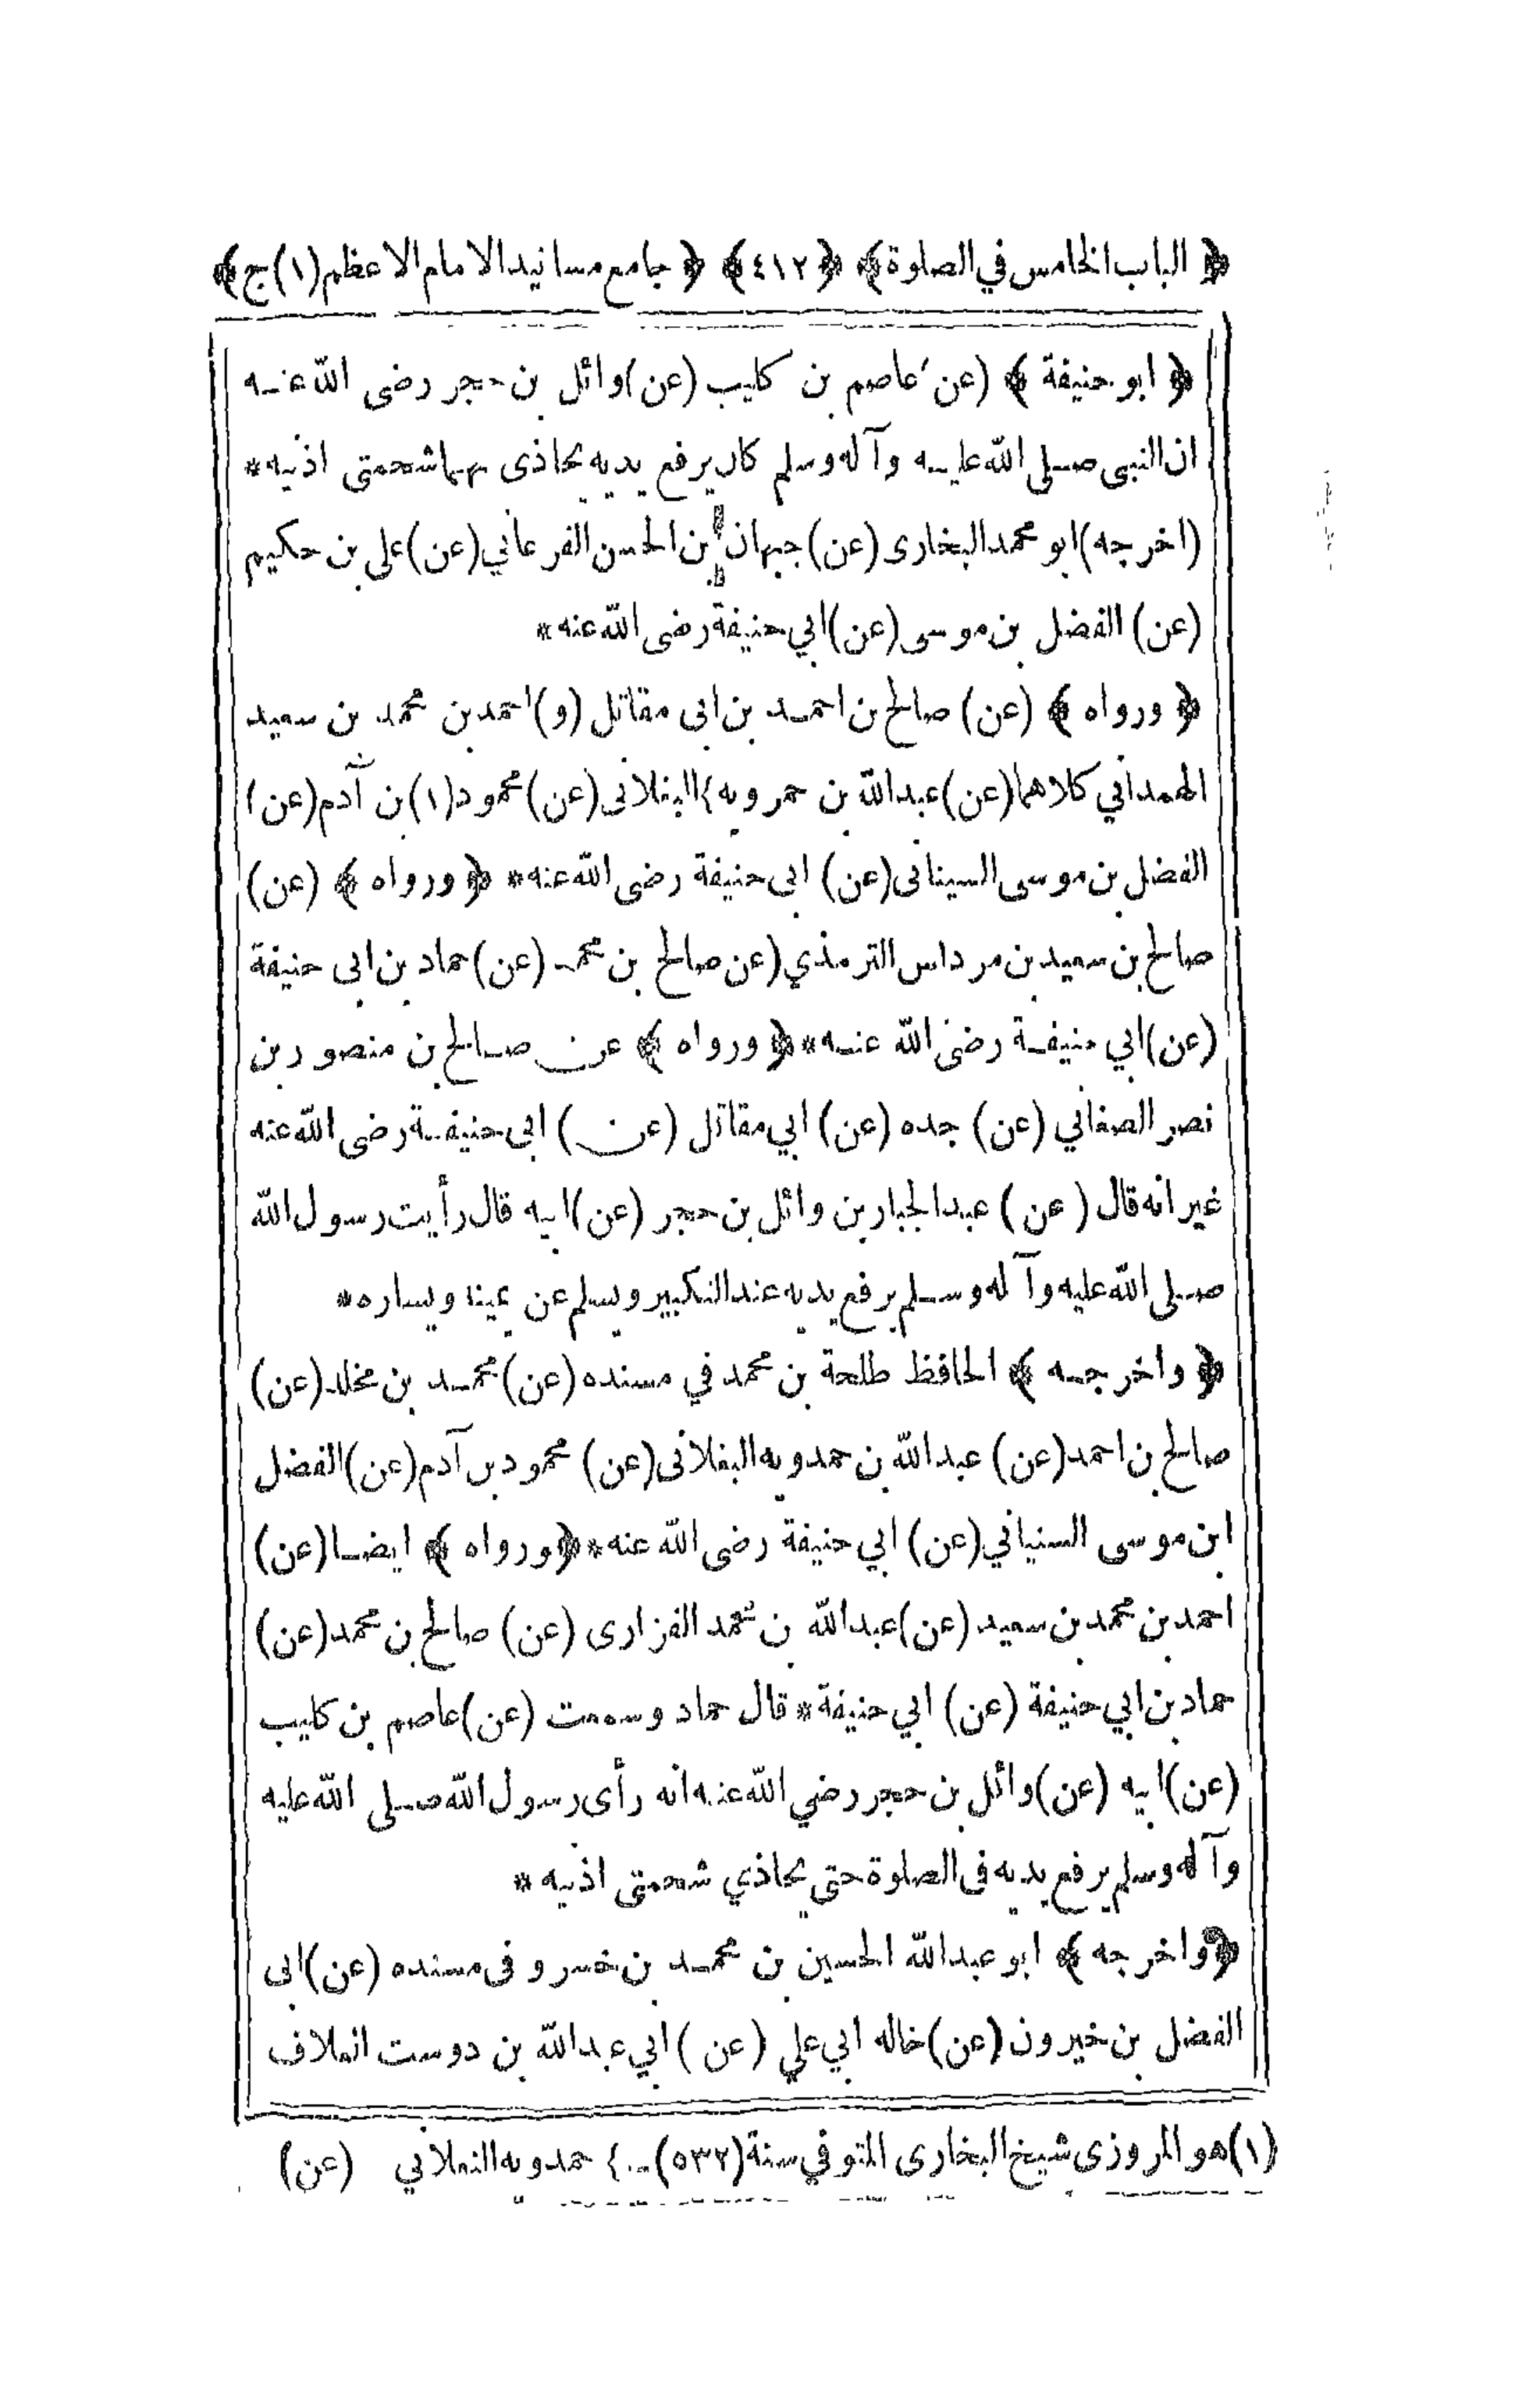 ﴿ الباب الخامس في الصلوة ﴾ ﴿ ٤١٢ ﴾ ﴿ جامع مسانيد الامام الاعظم (١) ج ﴾
﴿ ابو حنيفة ﴾ (عن عاصم بن كليب (عن) وائل بن حجر رضى الله عنه
ان النبى صلى الله عليه وآله وسلم كان يرفع يديه يحاذى بهما شحمتى اذنيه *
(اخرجه) ابو محمد البخارى (عن) جبهان بن الحسن الفرغاني (عن) على بن حكيم
(عن) الفضل بن موسى (عن) ابي حنيفة رضى الله عنه *
﴿ ورواه ﴾ (عن) صالح بن احمد بن ابى مقاتل (و) احمد بن محمد بن سعيد
الهمداني كلاهما (عن) عبد الله بن حمرويه } البغلانى (عن) محمود (١) بن آدم (عن)
الفضل بن موسى السينانى (عن) ابى حنيفة رضى الله عنه * ﴿ ورواه ﴾ (عن)
صالح بن سعيد بن مرداس الترمذي (عن صالح بن محمد (عن) حماد بن ابى حنيفة
(عن) ابي حنيفة رضى الله عنه * ﴿ ورواه ﴾ عن صالح بن منصور بن
نصر الصغاني (عن) جده (عن) ابي مقاتل (عن) ابى حنيفة رضى الله عنه
غير انه قال (عن) عبد الجبار بن وائل بن حجر (عن) ابيه قال رأيت رسول الله
صلى الله عليه وآله وسلم يرفع يديه عند التكبير ويسلم عن يمينا ويساره *
﴿ واخرجه ﴾ الحافظ طلحة بن محمد في مسنده (عن) محمد بن مخلد (عن)
صالح بن احمد (عن) عبد الله بن حمدويه البغلانى (عن) محمود بن آدم (عن) الفضل
ابن موسى السنياني (عن) ابي حنيفة رضى الله عنه * ﴿ ورواه ﴾ ايضا (عن)
احمد بن محمد بن سعيد (عن) عبد الله بن محمد الفزارى (عن) صالح بن محمد (عن)
حماد بن ابي حنيفة (عن) ابي حنيفة * قال حماد وسمعت (عن) عاصم بن كليب
(عن) ابيه (عن) وائل بن حجر رضي الله عنه انه رأى رسول الله صلى الله عليه
وآله وسلم يرفع يديه فى الصلوة حتى يحاذي شحمتى اذنيه *
﴿ واخرجه ﴾ ابو عبد الله الحسين بن محمد بن خسرو فى مسنده (عن) ابى
الفضل بن خيرون (عن) خاله ابي علي (عن) ابي عبد الله بن دوست العلاف
(١) هو المروزى شيخ البخارى المتوفي سنة (٥٣٢) _. } حمدويه (عن)